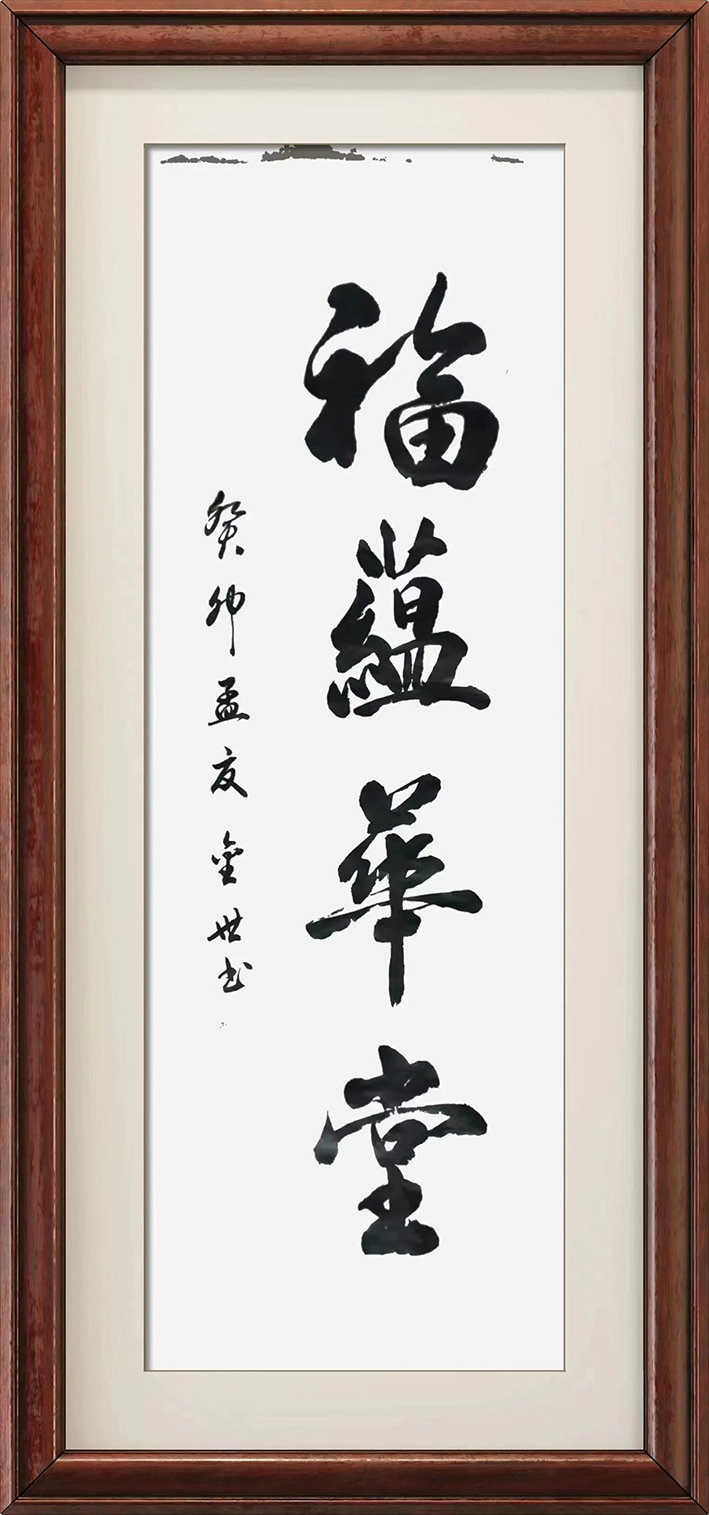 福蘊華堂
癸卯孟夏金世书